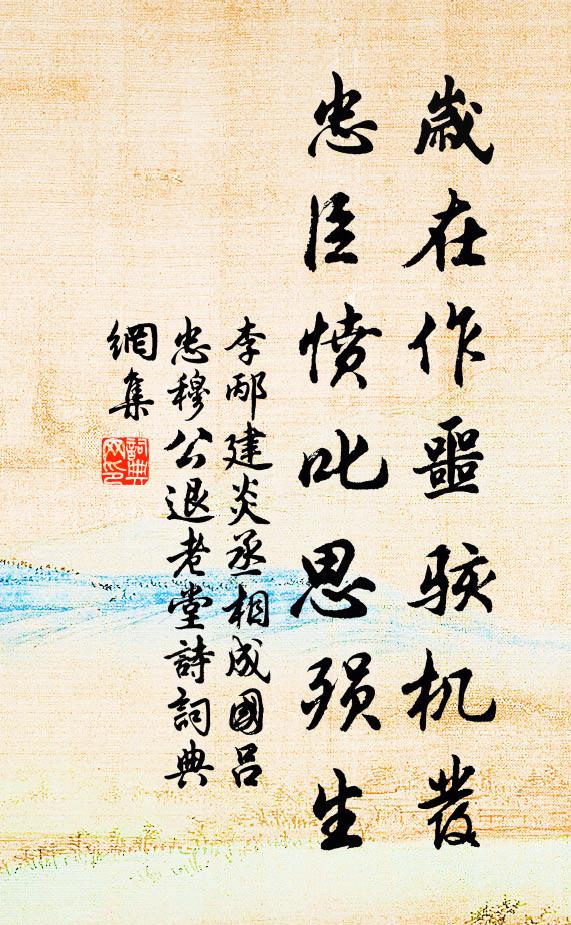 歲在作噩駭机發
忠臣憤叱思殞生
李邴建炎丞相成國呂
忠穆公退老堂詩詞典
網集
詞典網印